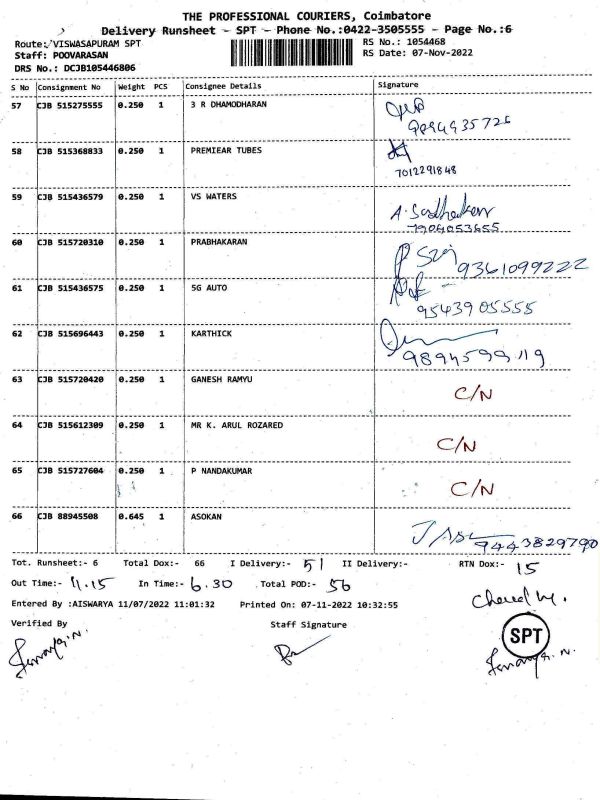 THE PROFESSIONAL COURIERS, Coimbatore
Delivery Runsheet - SPT - Phone No.:0422-3505555 - Page No.:6
Route: VISWASAPURAM SPT
RS No.: 1054468
Staff: POOVARASAN
RS Date: 07-Nov-2022
DRS No.: DCJB105446806
S No Consignment No Weight PCS Consignee Details Signature
57 CJB 515275555 0.250 1 3 R DHAMODHARAN
58 CJB 515368833 0.250 1 PREMIEAR TUBES
7012291848
59 CJB 515436579 0.250 1 VS WATERS
7904053655
60 CJB 515720310 0.250 1 PRABHAKARAN
9361099222
61 CJB 515436575 0.250 1 5G AUTO
9543905555
62 CJB 515696443 0.250 1 KARTHICK
9894599119
63 CJB 515720420 0.250 1 GANESH RAMYU C/N
64 CJB 515612309 0.250 1 MR K. ARUL ROZARED C/N
65 CJB 515727604 0.250 1 P NANDAKUMAR C/N
66 CJB 88945508 0.645 1 ASOKAN
9443829790
Tot. Runsheet:- 6 Total Dox:- 66 I Delivery:- 51 II Delivery:- RTN Dox:- 15
Out Time:- 11.15 In Time:- 6.30 Total POD:- 56
Entered By :AISWARYA 11/07/2022 11:01:32 Printed On: 07-11-2022 10:32:55
Verified By Staff Signature
SPT